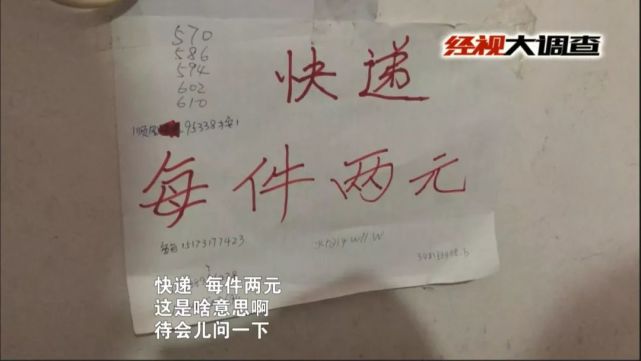 经视大调查
570
586
594
602
610
快递
95338
每件两元
15173177423
快递 每件两元
这是啥意思啊
待会儿问一下